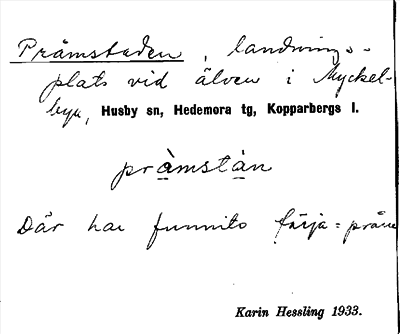 Pråmstaden, landnings-
plats vid älven i Myckel-
byn, Husby sn, Hedemora tg, Kopparbergs l.
pràmstàn
Där har funnits färja = pråm
Karin Hessling 1933.